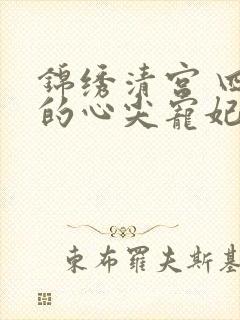 錦绣清宫 四
的心尖寵妃
東布羅夫斯基